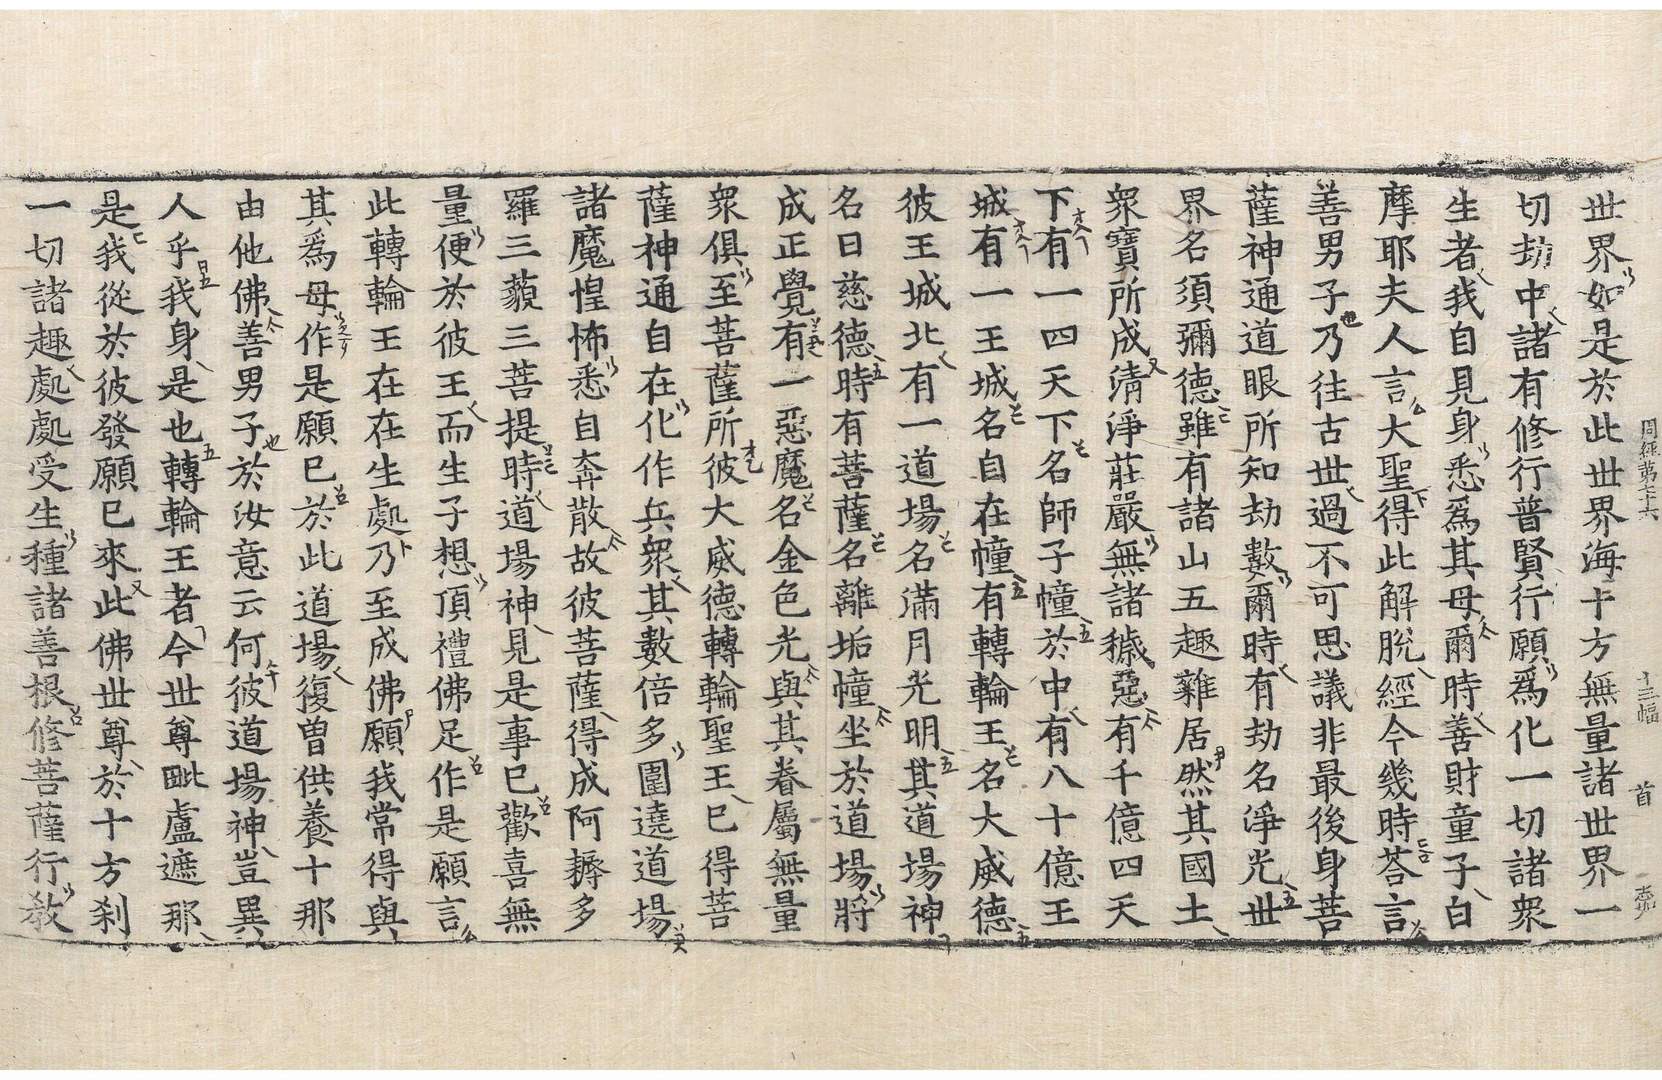 周経第七十六 十三幅 首
世界如是於此世界海十方無量諸世界一
切劫中諸有修行普賢行願爲化一切諸衆
生者我自見身悉爲其母爾時善財童子白
摩耶夫人言大聖得此解脫經今幾時荅言
善男子乃往古世過不可思議非最後身菩
薩神通道眼所知劫數爾時有劫名淨光世
界名須彌德雖有諸山五趣雜居然其國土
衆寶所成清淨莊嚴無諸穢惡有千億四天
下有一四天下名師子幢於中有八十億王
城有一王城名自在幢有轉輪王名大威德
彼王城北有一道場名滿月光明其道場神
名曰慈德時有菩薩名離垢幢坐於道場將
成正覺有一惡魔名金色光與其眷屬無量
衆俱至菩薩所彼大威德轉輪聖王已得菩
薩神通自在化作兵衆其數倍多圍遶道場
諸魔惶怖悉自奔散故彼菩薩得成阿耨多
羅三藐三菩提時道場神見是事已歡喜無
量便於彼王而生子想頂禮佛足作是願言
此轉輪王在在生處乃至成佛願我常得與
其爲母作是願已於此道場復曽供養十那
由他佛善男子於汝意云何彼道場神豈異
人乎我身是也轉輪王者今世尊毗盧遮那
是我從於彼發願已來此佛世尊於十方刹
一切諸趣處處受生種諸善根修菩薩行教